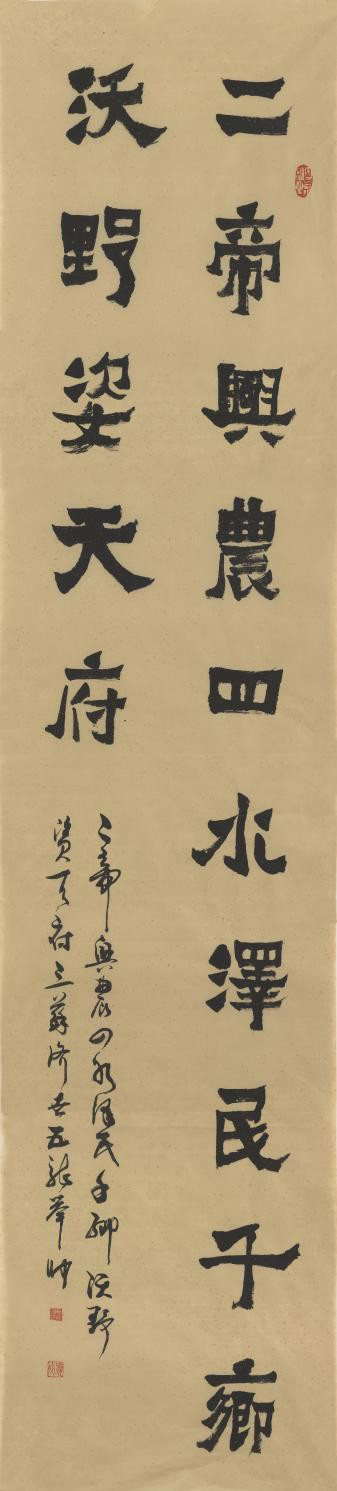 二帝興農四水澤民千鄉
沃野姿天府
二帝興農四水澤民千鄉沃野
資天府三蘇濟世五龍